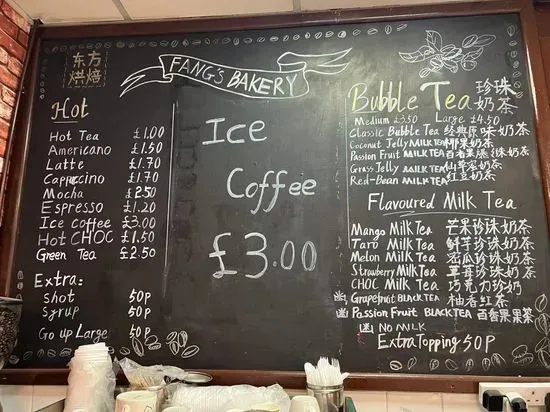 东方
烘焙
FANG'S BAKERY
Hot
Hot Tea £1.00
Americano £1.50
Latte £1.70
Cappuccino £1.70
Mocha £2.50
Espresso £1.20
Ice coffee £3.00
Hot CHOC £1.50
Green Tea £2.50
Extra:
shot 50p
syrup 50p
Go up Large 50p
Ice
Coffee
£3.00
Bubble Tea 珍珠
奶茶
Medium £3.50 Large £4.50
Classic Bubble Tea 经典原味奶茶
Coconut Jelly MILK TEA 椰果奶茶
Passion Fruit MILK TEA 百香果
Grass Jelly MILK TEA
Red-Bean MILK TEA 红豆奶茶
Flavoured Milk Tea
Mango Milk Tea 芒果珍珠奶茶
Taro Milk Tea 鲜芋珍珠奶茶
Melon Milk Tea 蜜瓜珍珠奶茶
Strawberry Milk Tea 草莓珍珠奶茶
CHOC Milk Tea 巧克力珍奶
Grapefruit BLACK TEA 柚香红茶
Passion Fruit BLACK TEA 百香果果茶
NO MILK
Extra Topping 50P